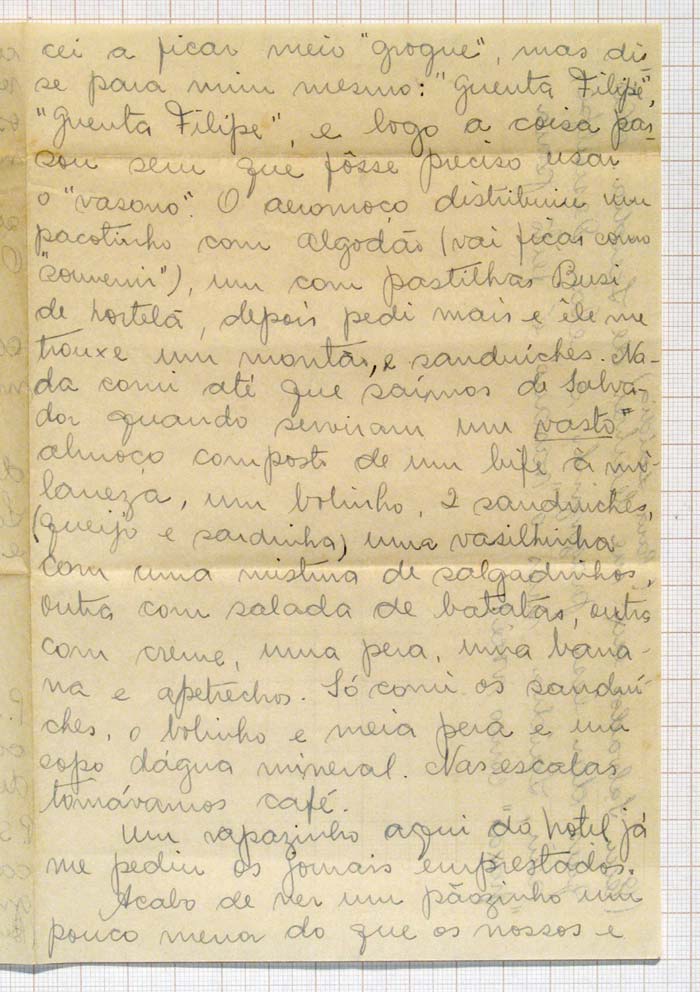 cei a ficar meio "grogue", mas dis-
se para mim mesmo: "Guenta Filipe",
"Guenta Filipe", e logo a coisa pas-
sou sem que fôsse preciso usar
o "vasono". O aeromoço distribuiu um
pacotinho com algodão (vai ficar como
"souvenir"), um com pastilhas Busi
de hortelã, depois pedi mais e êle me
trouxe um montão, e sanduíches. Na-
da comi até que saímos de Salva-
dor quando serviram um vasto"
almoço composto de um bife à mi-
laneza, um bolinho, 2 sanduiches,
(queijo e sardinha) uma vasilhinha
com uma mistura de salgadinhos,
outra com salada de batatas, outra
com creme, uma pera, uma bana-
na e apetrechos. Só comi os sanduí-
ches, o bolinho e meia pera e um
copo dágua mineral. Nas escalas
tomávamos café.
Um rapazinho aqui do hotel já
me pediu os jornais emprestados.
Acabo de ver um pãozinho um
pouco menor do que os nossos e